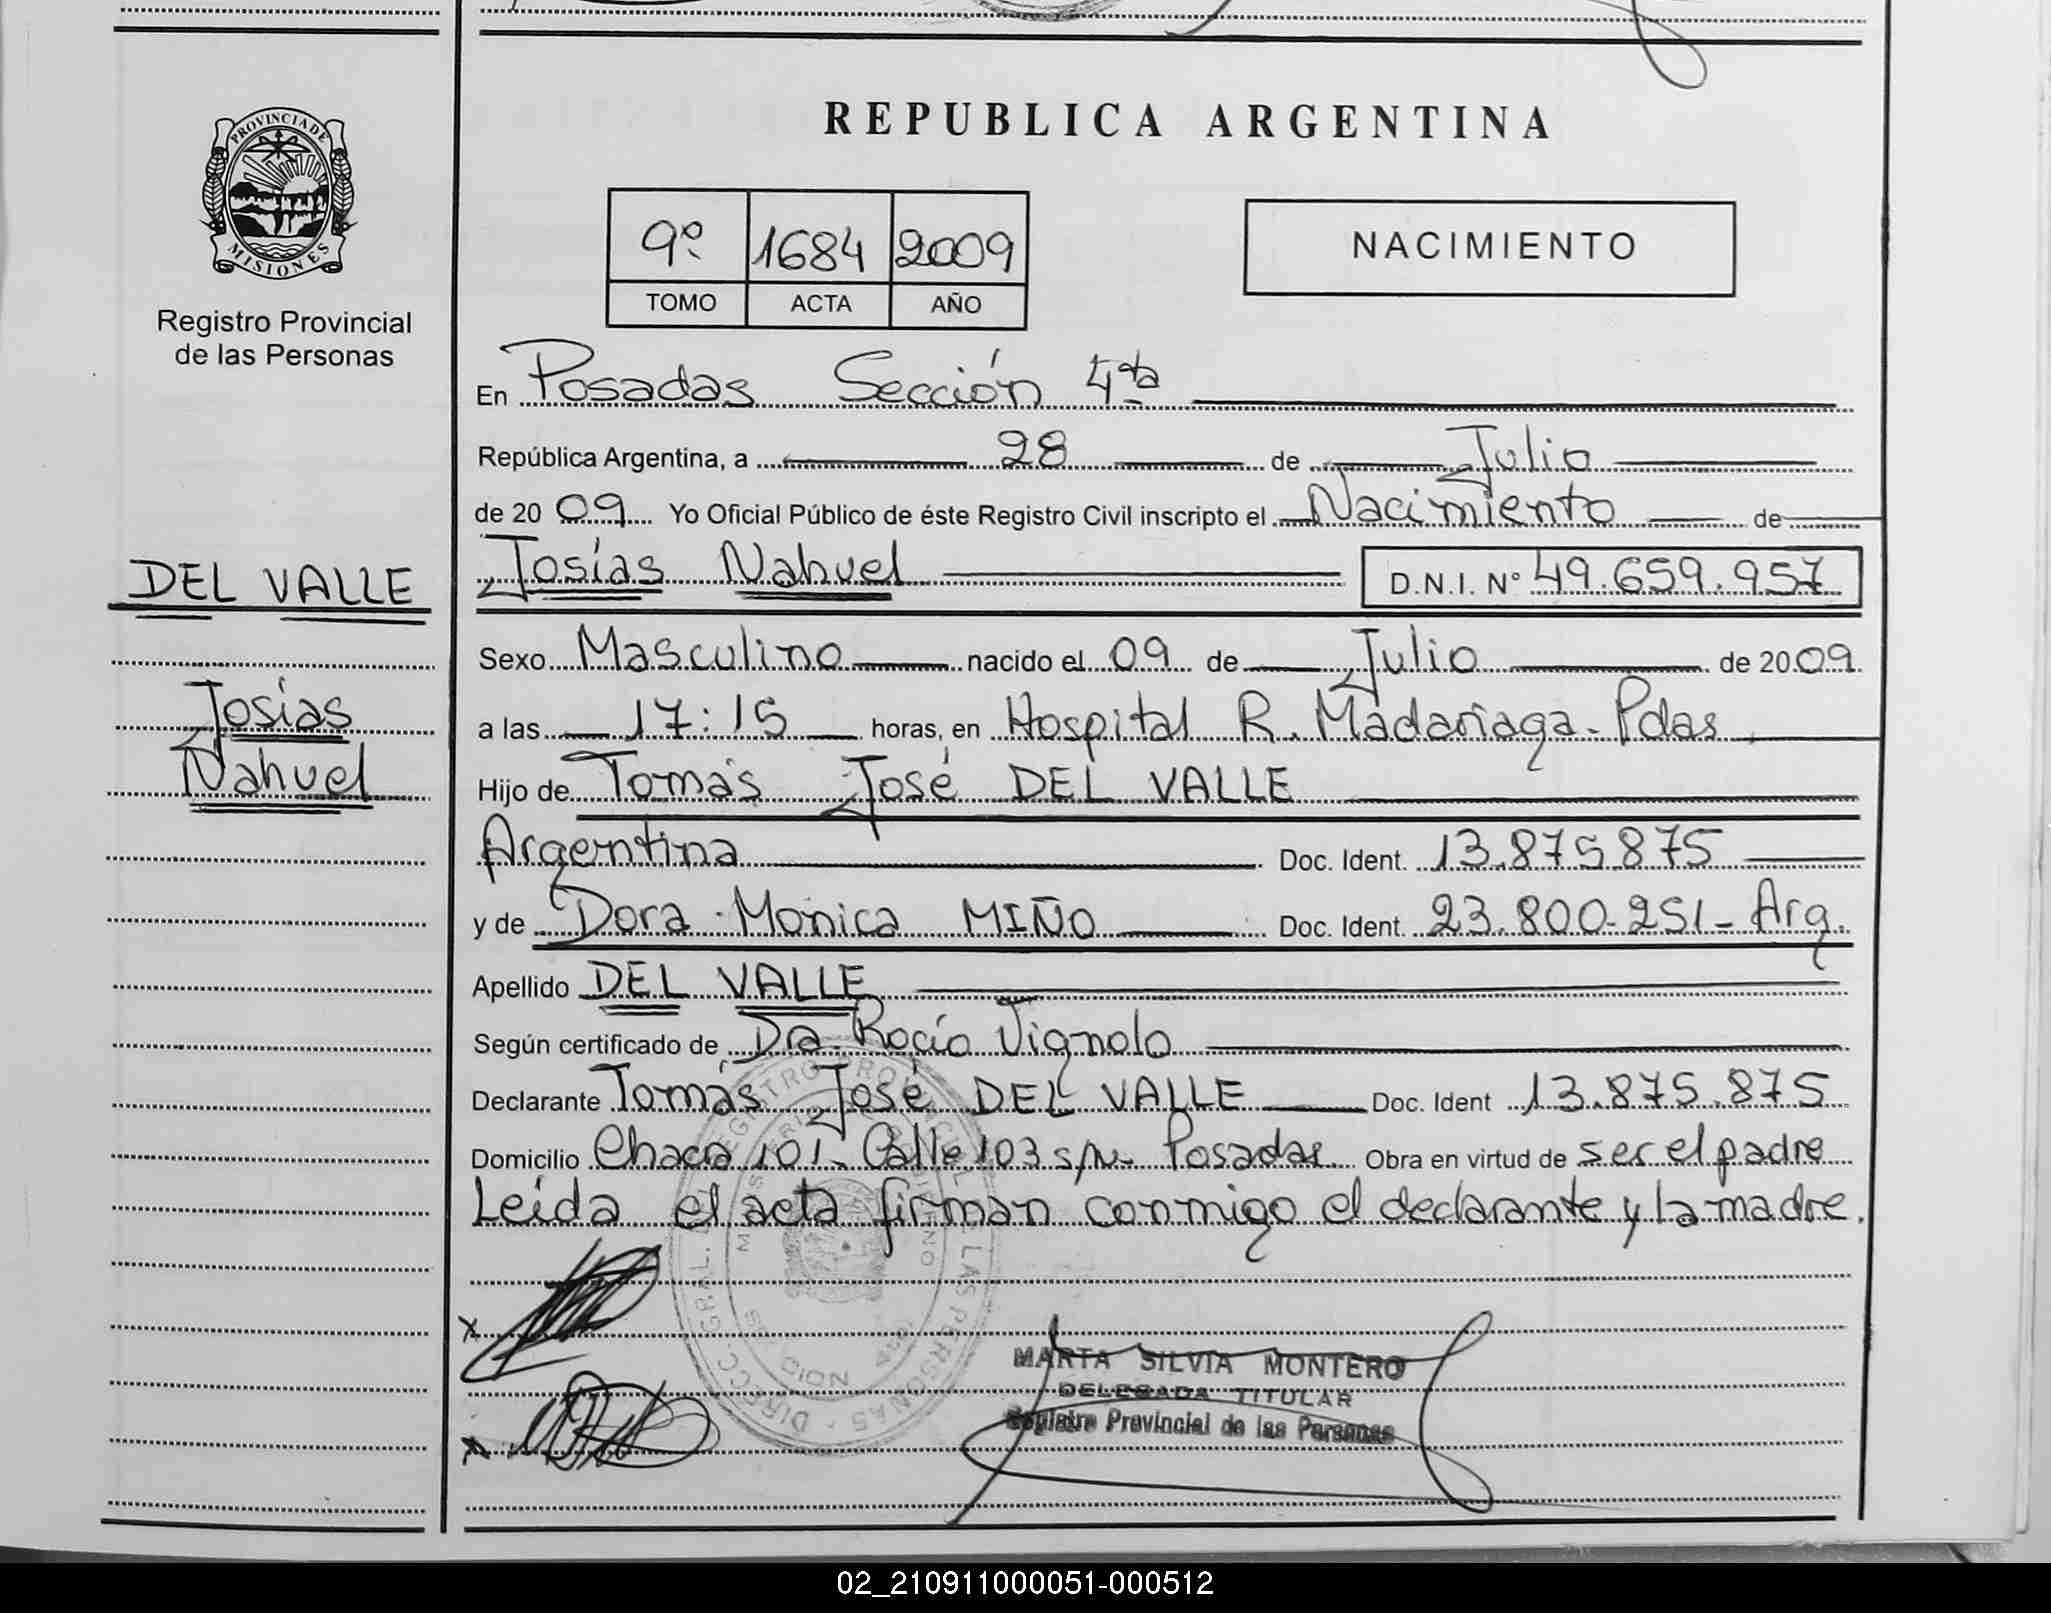 PROVINCIA DE
MISIONES
Registro Provincial
de las Personas
DEL VALLE
Josías
Nahuel
REPUBLICA ARGENTINA
9º 1684 2009
TOMO ACTA AÑO
NACIMIENTO
En Posadas Sección 4ta
República Argentina, a 28 de Julio
de 2009 Yo Oficial Público de éste Registro Civil inscripto el Nacimiento de
Josías Nahuel D.N.I. Nº 49.659.957
Sexo Masculino nacido el 09 de Julio de 2009
a las 17:15 horas, en Hospital R. Madariaga - Pdas
Hijo de Tomás José DEL VALLE
Argentina Doc. Ident. 13.875.875
y de Dora Mónica MIÑO Doc. Ident. 23.800.251- Arg.
Apellido DEL VALLE
Según certificado de Dra. Rocío Vignolo
Declarante Tomás José DEL VALLE Doc. Ident 13.875.875
Domicilio Chacra 101- Calle 103 s/n- Posadas Obra en virtud de ser el padre
Leída el acta firman conmigo el declarante y la madre.
x
x
MARTA SILVIA MONTERO
DELEGADA TITULAR
Registro Provincial de las Personas
02_210911000051-000512